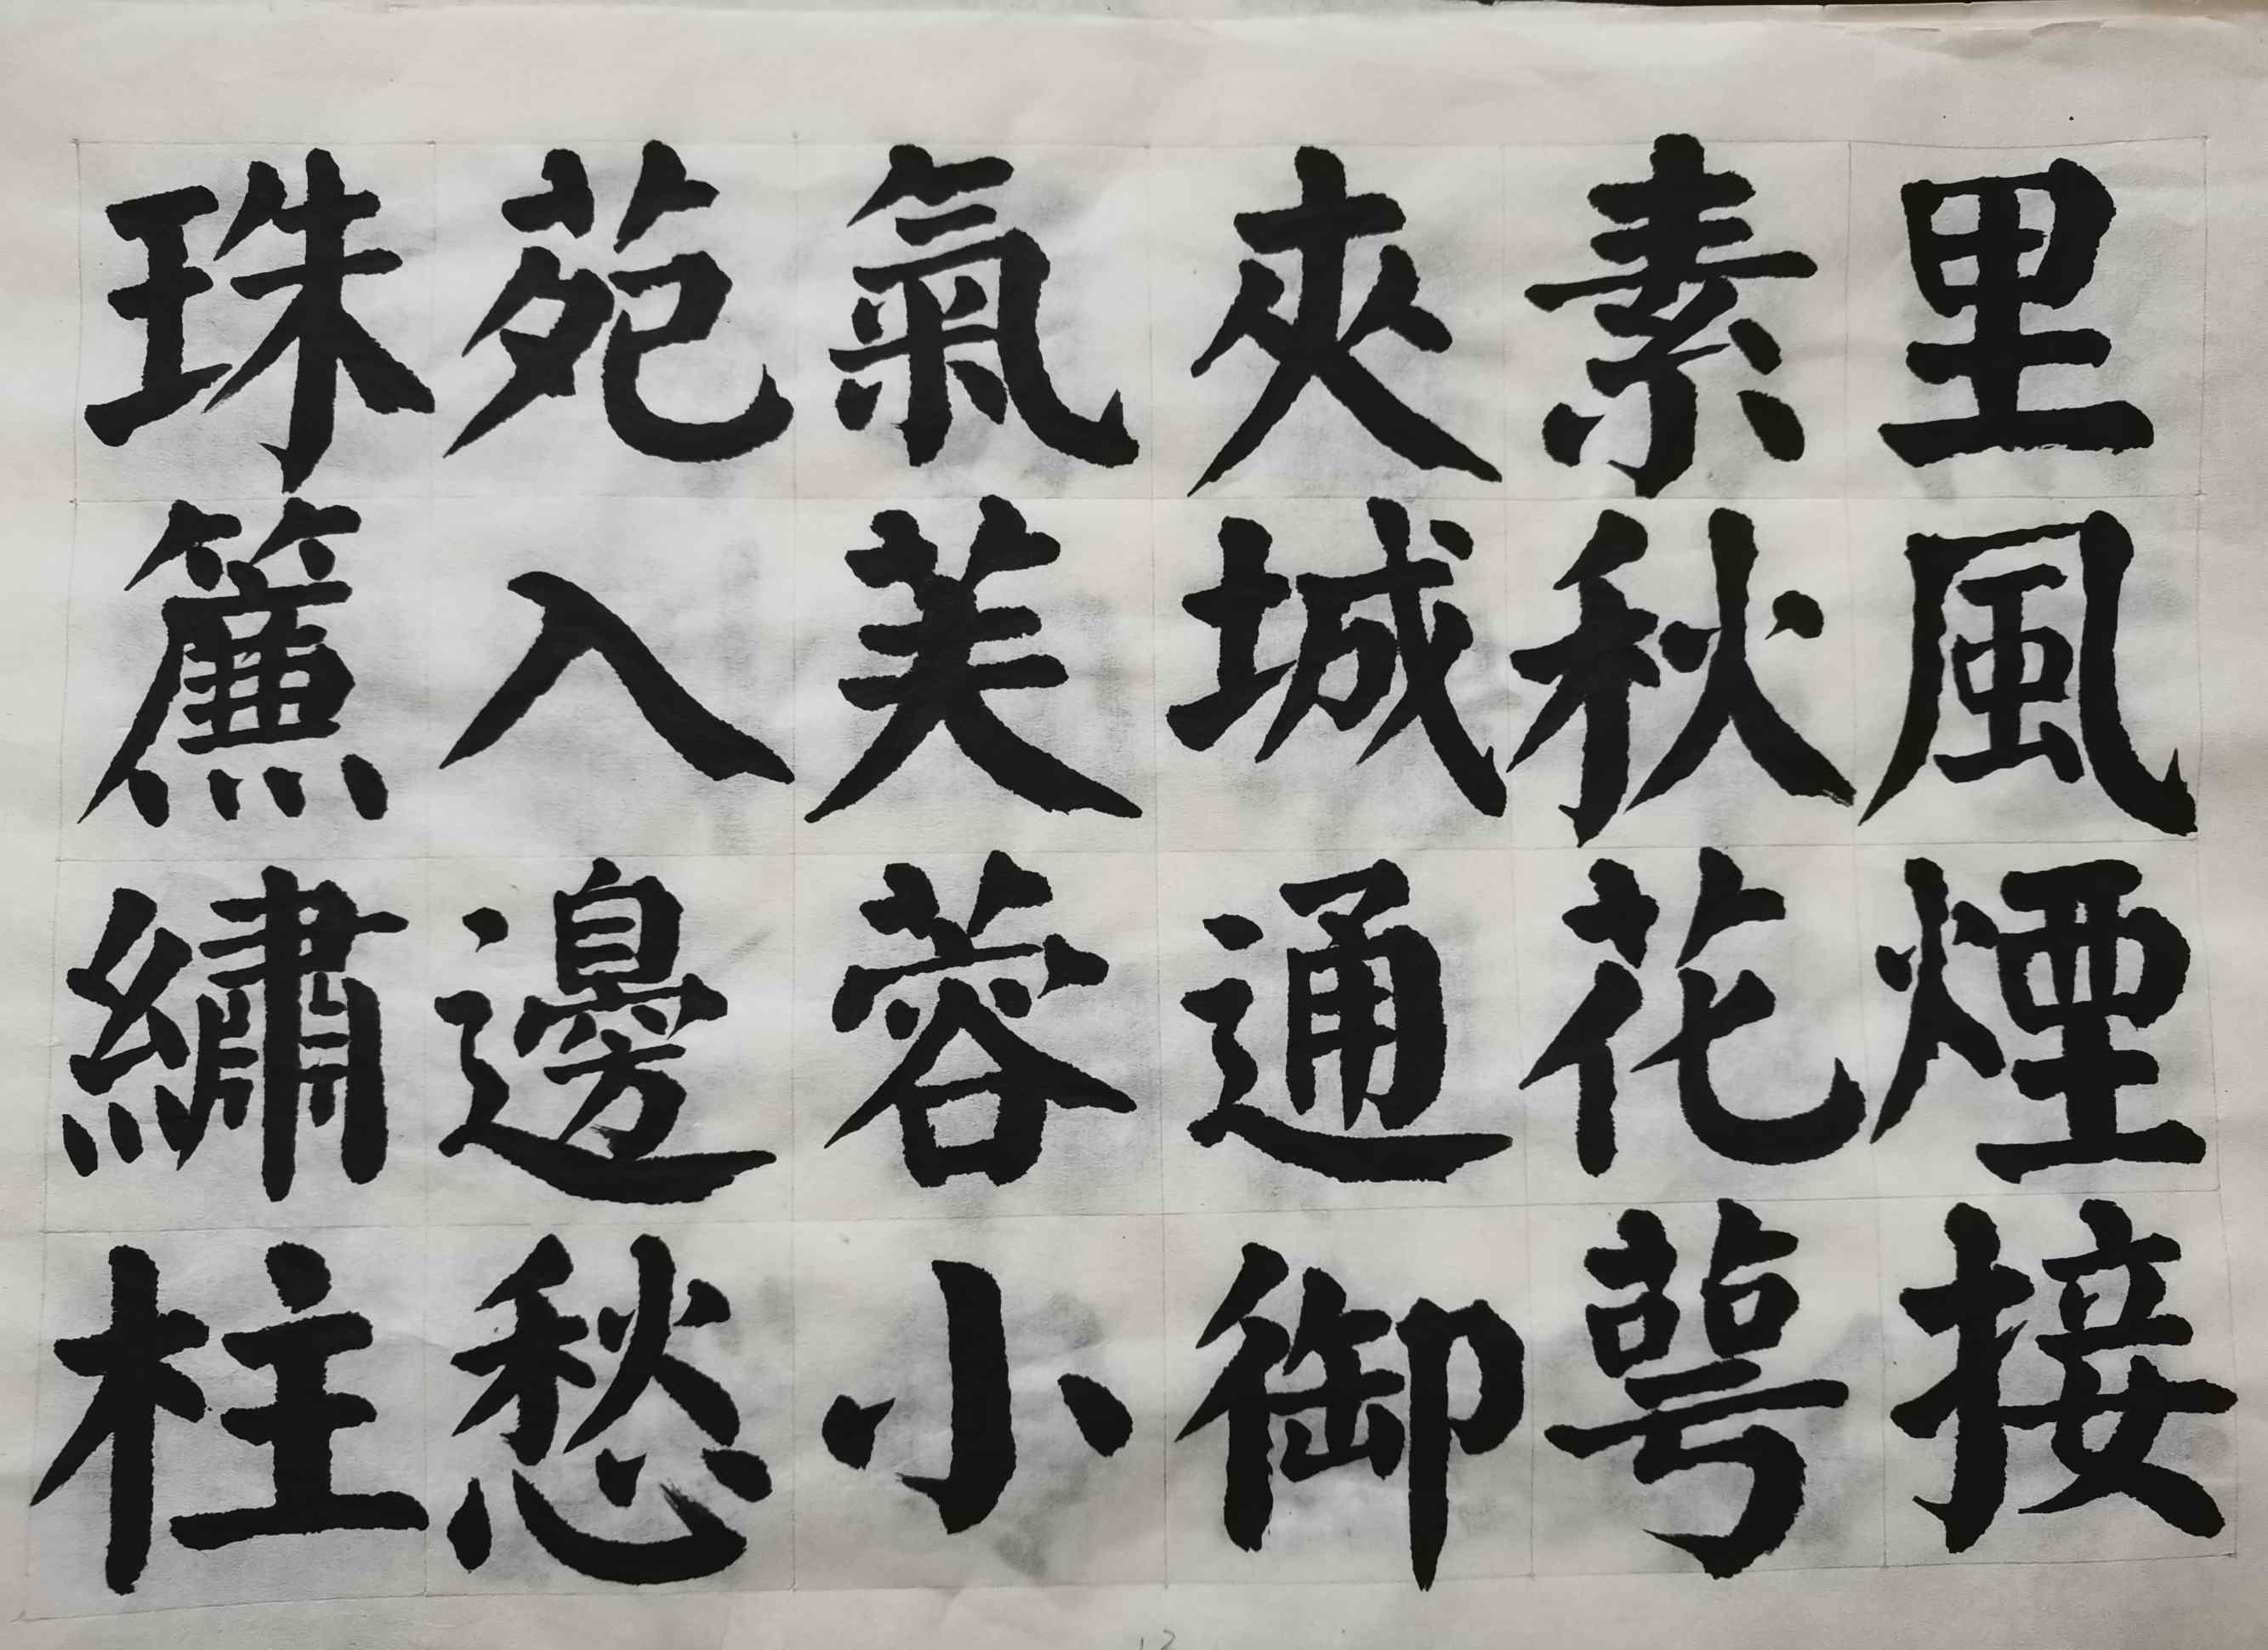 里風煙接
素秋花萼
夾城通御
氣芙蓉小
苑入邊愁
珠簾繡柱